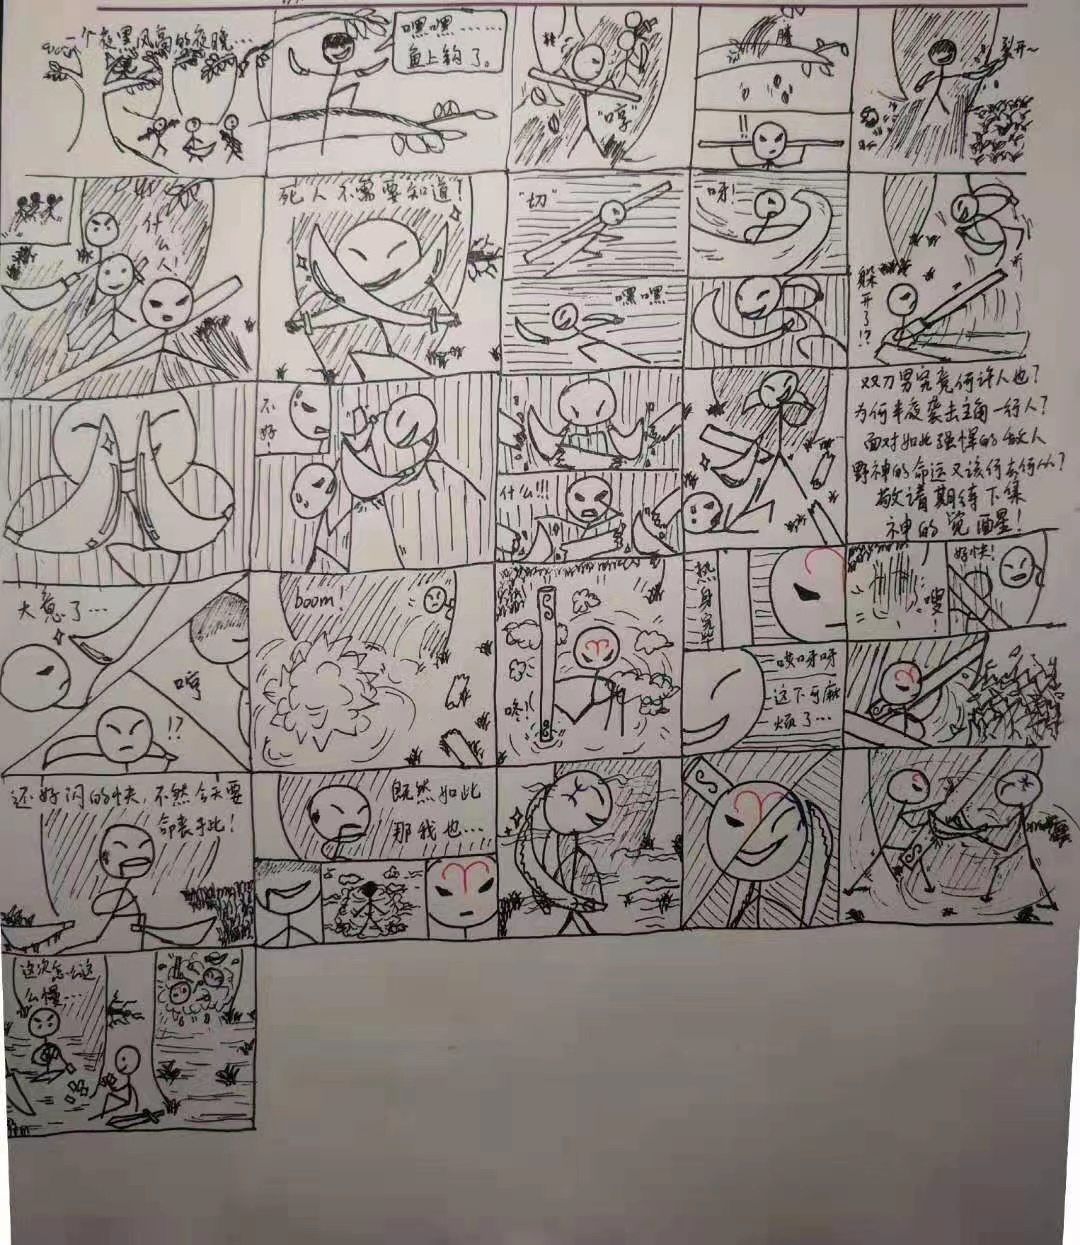 一个夜黑风高的夜晚…
嘿嘿……
鱼上钩了。
"哼"
腾
!!
裂开~
什么
人!
死人不需要知道!
"切"
嘿嘿
呀!
躲
开
了
!?
不
好!
什么!!!
双刀男究竟何许人也?
为何半夜袭击主角一行人?
面对如此强悍的敌人
野神的命运又该何去何从?
敬请期待下集
神的觉醒!
大意了…
哼
!?
boom!
咚!
热
身
完
毕
哎呀呀
这下可麻
烦了…
嗖!
好快!
还好闪的快,不然今天要
命丧于此!
既然如此
那我也…
这次怎么这
么慢…